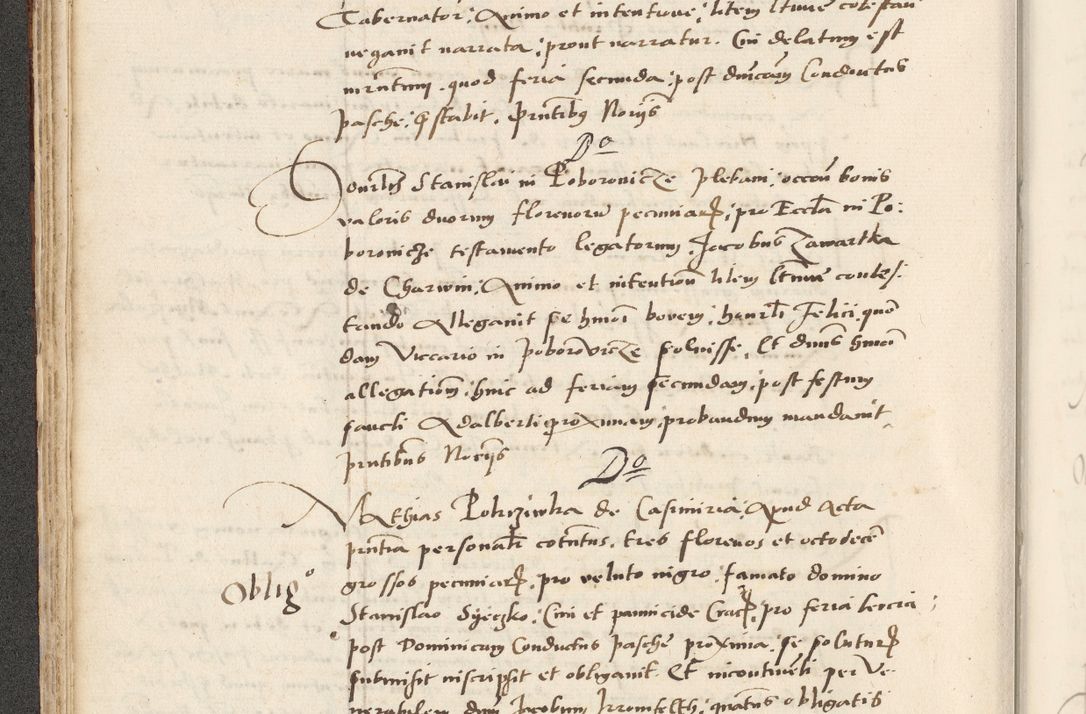 Tabernator, Animo et intentione, litem ltime cotestan
negavit narrata, prout narratur. Cui delatum est
iurātum. quod feria secunda, post dnicam Conductus
pasche, pstabit. pntibus Notijs
Do
Honrlis Stanislai in Poborovicze plebani, occon bonis
valoris duorum florenoru pecuniar, pro Eccla in Po:
boroviczе testamento legatorum, Jacobus Zawartka
de Charwin, Animo et intention litem ltime contes:
tando Allegavit se hmoi bovem, honrli Felici, quon
dam Viccario in poborowicze soluisse, Et dnus hmoi
allegationem, hinc ad feriam secundam, post festum
sancti Adalberti proximam, probandum mandavit,
pntibus Notijs
Do
Mathias Pokrziwka de Casimiria, Apud Acta
pntia personalr cotntus, tres florenos et octodecem
grossos pecuniar, pro veluto nigro, famato domino
Obligo
Stanislao Syeczko, Civi et pannicide Crac, pro feria tercia
post Dominicam Conductus pasche proxima, se soluturum
submisit inscripsit et obligavit. Et incontinenti per Ve-
nerabilem dnm Jacobum quatenus obligatis